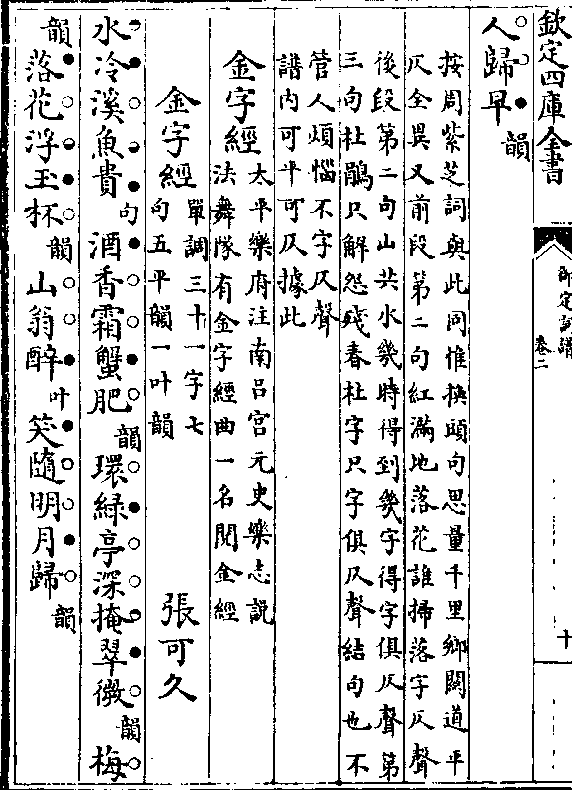 欽定四庫全書
御定詞譜
卷二
十
人歸早韻
按周紫芝詞與此同惟換頭句思量千里鄉關道平
仄全異又前段第二句紅滿地落花誰掃落字仄聲
後段第二句山共水幾時得到幾字得字俱仄聲第
三句杜鵑只解怨殘春杜字只字俱仄聲結句也不
管人煩惱不字仄聲
譜内可平可仄據此
金字經
太平樂府注南呂宫元史樂志說
法舞隊有金字經曲一名閱金經
金字經
單調三十一字七
句五平韻一叶韻
張可久
水冷溪魚貴句酒香霜蟹肥韻環緑亭深掩翠微韻梅
韻落花浮玉杯韻山翁醉叶笑隨明月歸韻